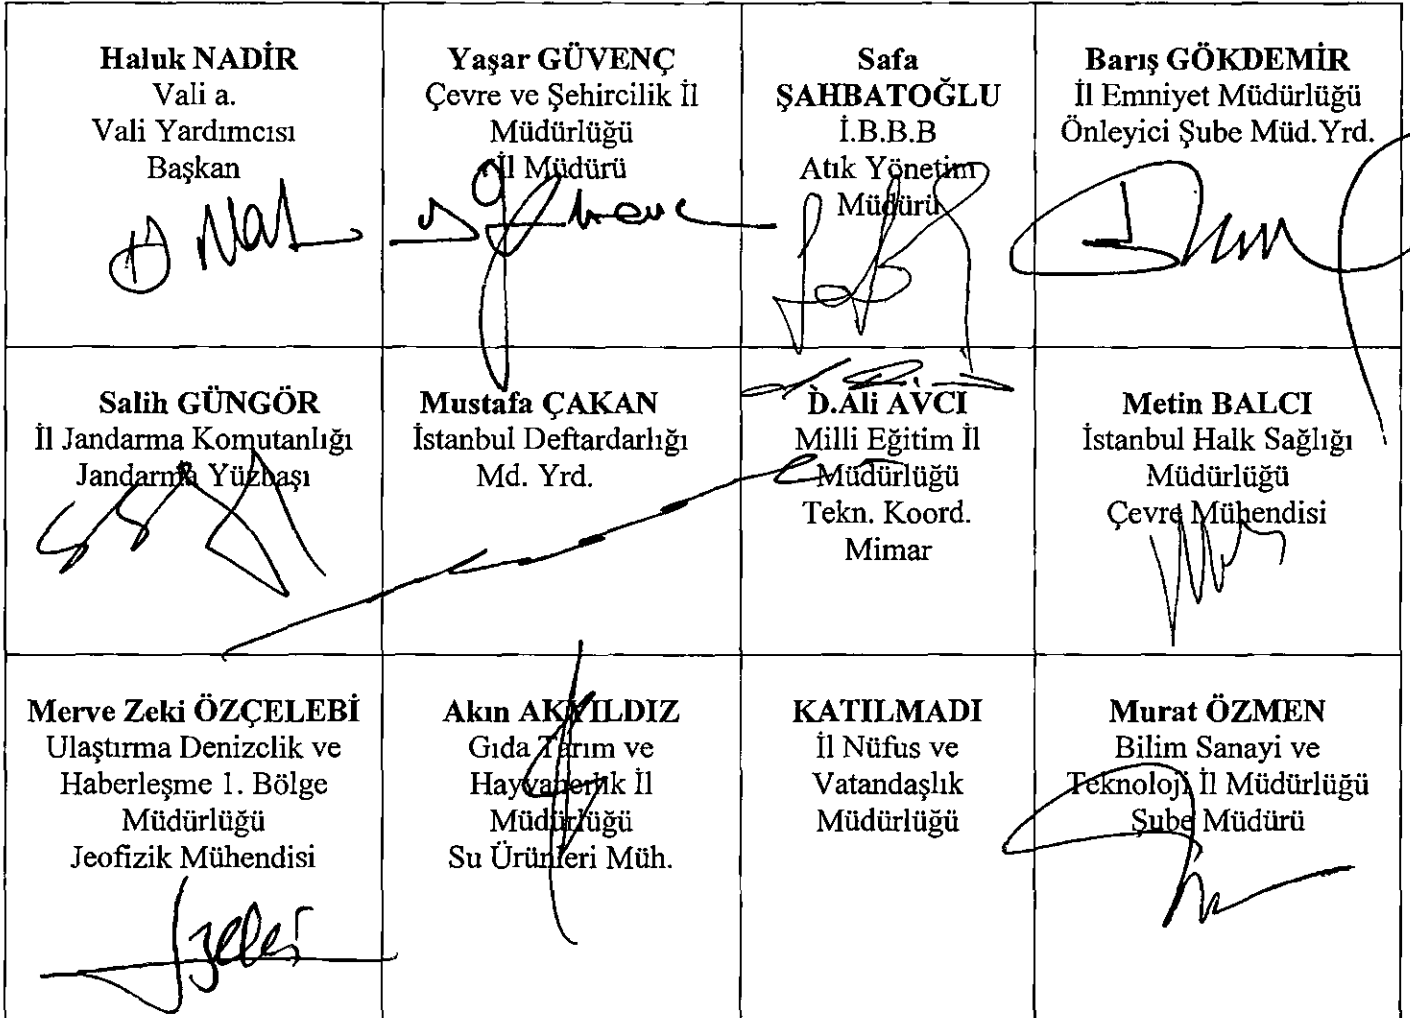 Haluk NADİR
Vali a.
Vali Yardımcısı
Başkan
Yaşar GÜVENÇ
Çevre ve Şehircilik İl
Müdürlüğü
İl Müdürü
Safa
ŞAHBATOĞLU
İ.B.B.B
Atık Yönetim
Müdürü
Barış GÖKDEMİR
İl Emniyet Müdürlüğü
Önleyici Şube Müd.Yrd.
Salih GÜNGÖR
İl Jandarma Komutanlığı
Jandarma Yüzbaşı
Mustafa ÇAKAN
İstanbul Deftardarlığı
Md. Yrd.
D.Ali AVCI
Milli Eğitim İl
Müdürlüğü
Tekn. Koord.
Mimar
Metin BALCI
İstanbul Halk Sağlığı
Müdürlüğü
Çevre Mühendisi
Merve Zeki ÖZÇELEBİ
Ulaştırma Denizclik ve
Haberleşme 1. Bölge
Müdürlüğü
Jeofizik Mühendisi
Akın AKYILDIZ
Gıda Tarım ve
Hayvancılık İl
Müdürlüğü
Su Ürünleri Müh.
KATILMADI
İl Nüfus ve
Vatandaşlık
Müdürlüğü
Murat ÖZMEN
Bilim Sanayi ve
Teknoloji İl Müdürlüğü
Şube Müdürü